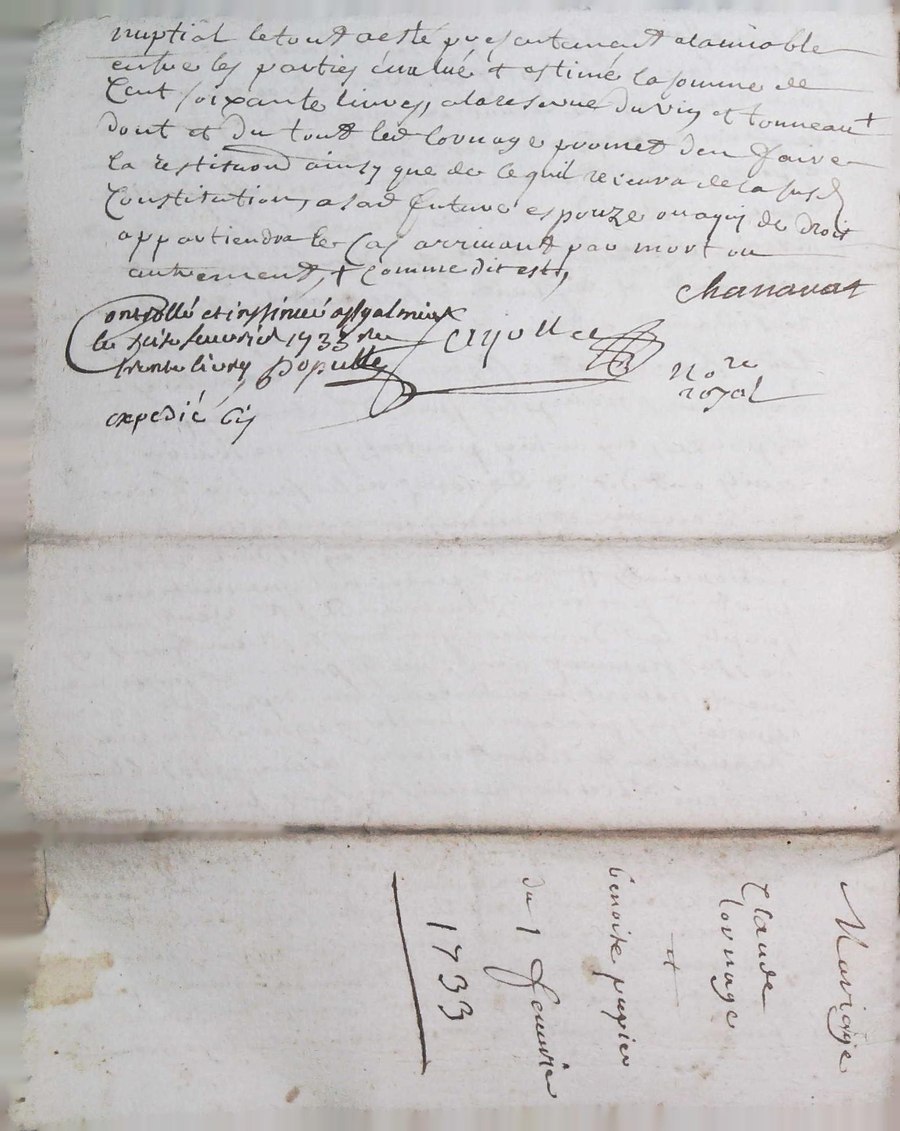 nuptial le tout a esté presentement et amiable
entre les parties évalué et estimé la somme de
Cent soixante livres, a la reserve du vin et tonneau +
dont et du tout led Cornage promet d'en faire
la restituon ainsy que de ce quil recevra de la susd
Constitution, a sad future espouze ou a qui de droit
appartiendra le Cas arrivant par mort ou
autrement, + Comme dit est,
chanavat
Controllé et insinué a St galmier
le seize feuvrier 1733 Re
trente livres Populle
No.re
royal
expedié
Mariage
Claude
Cornage
et
benoite papier
du 1 feuvrie
1733